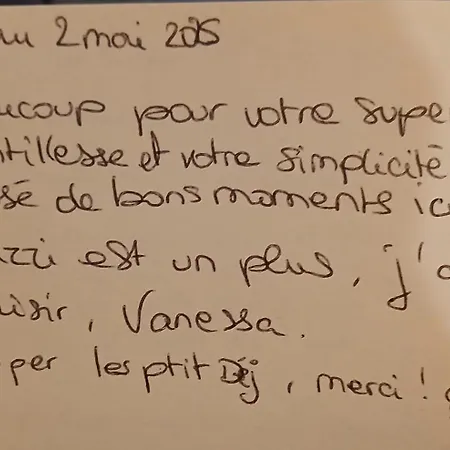 au 2 mai 2025
ucoup pour votre supe
tillesse et votre simplicité
sé de bons moments ic
zzi est un plus, j'a
isir, Vanessa.
per les ptit Dej, merci !